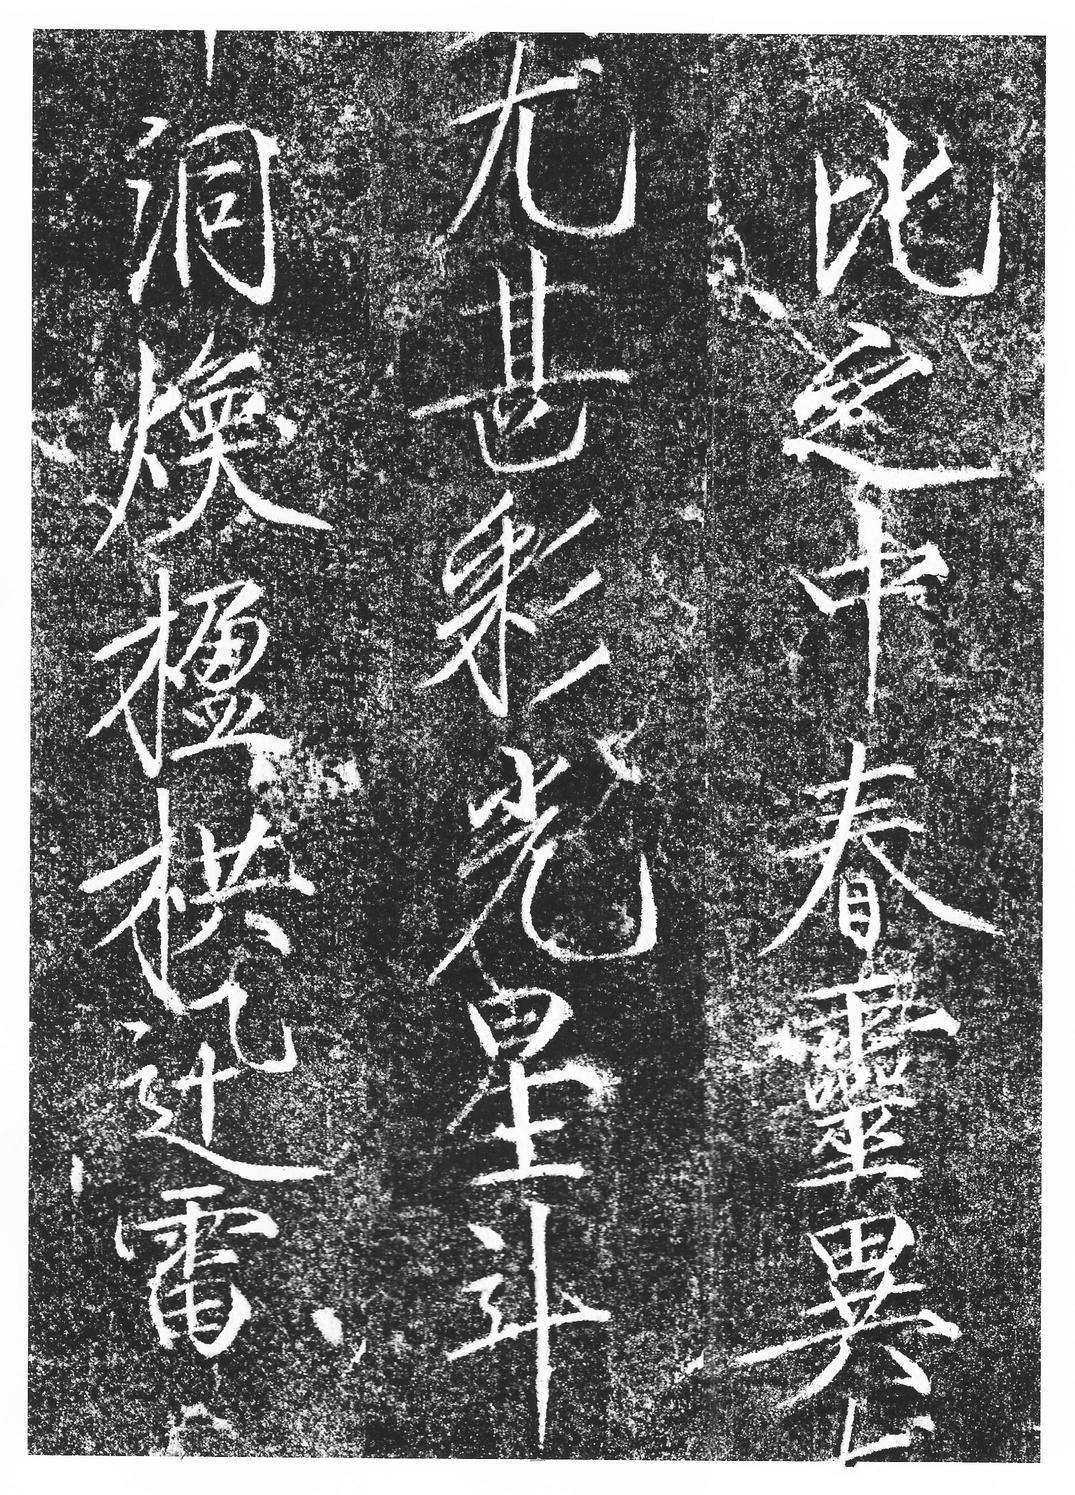 此之中春靈異
尤甚彩光星斗
洞煥楹栱迅雷